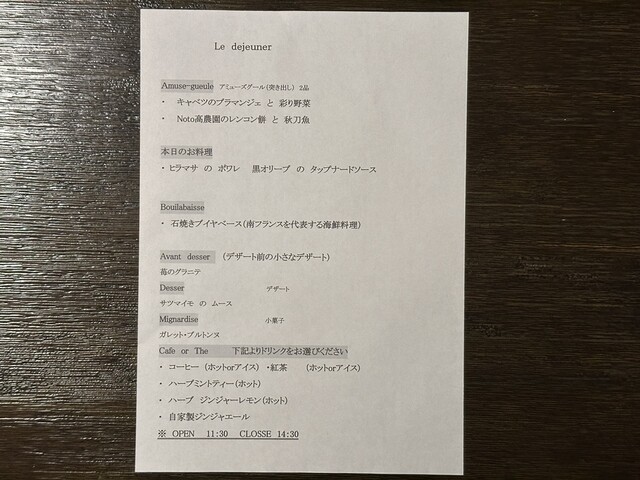 Le dejeuner
Amuse-gueule アミューズグール(突き出し) 2品
・ キャベツのブラマンジェ と 彩り野菜
・ Noto高農園のレンコン餅 と 秋刀魚
本日のお料理
・ヒラマサ の ポワレ 黒オリーブ の タップナードソース
Bouilabaisse
・ 石焼きブイヤベース(南フランスを代表する海鮮料理)
Avant desser (デザート前の小さなデザート)
苺のグラニテ
Desser デザート
サツマイモ の ムース
Mignardise 小菓子
ガレット・ブルトンヌ
Cafe or The 下記よりドリンクをお選びください
・ コーヒー (ホットorアイス) ・紅茶 (ホットorアイス)
・ ハーブミントティー(ホット)
・ ハーブ ジンジャーレモン(ホット)
・ 自家製ジンジャエール
※ OPEN 11:30 CLOSSE 14:30